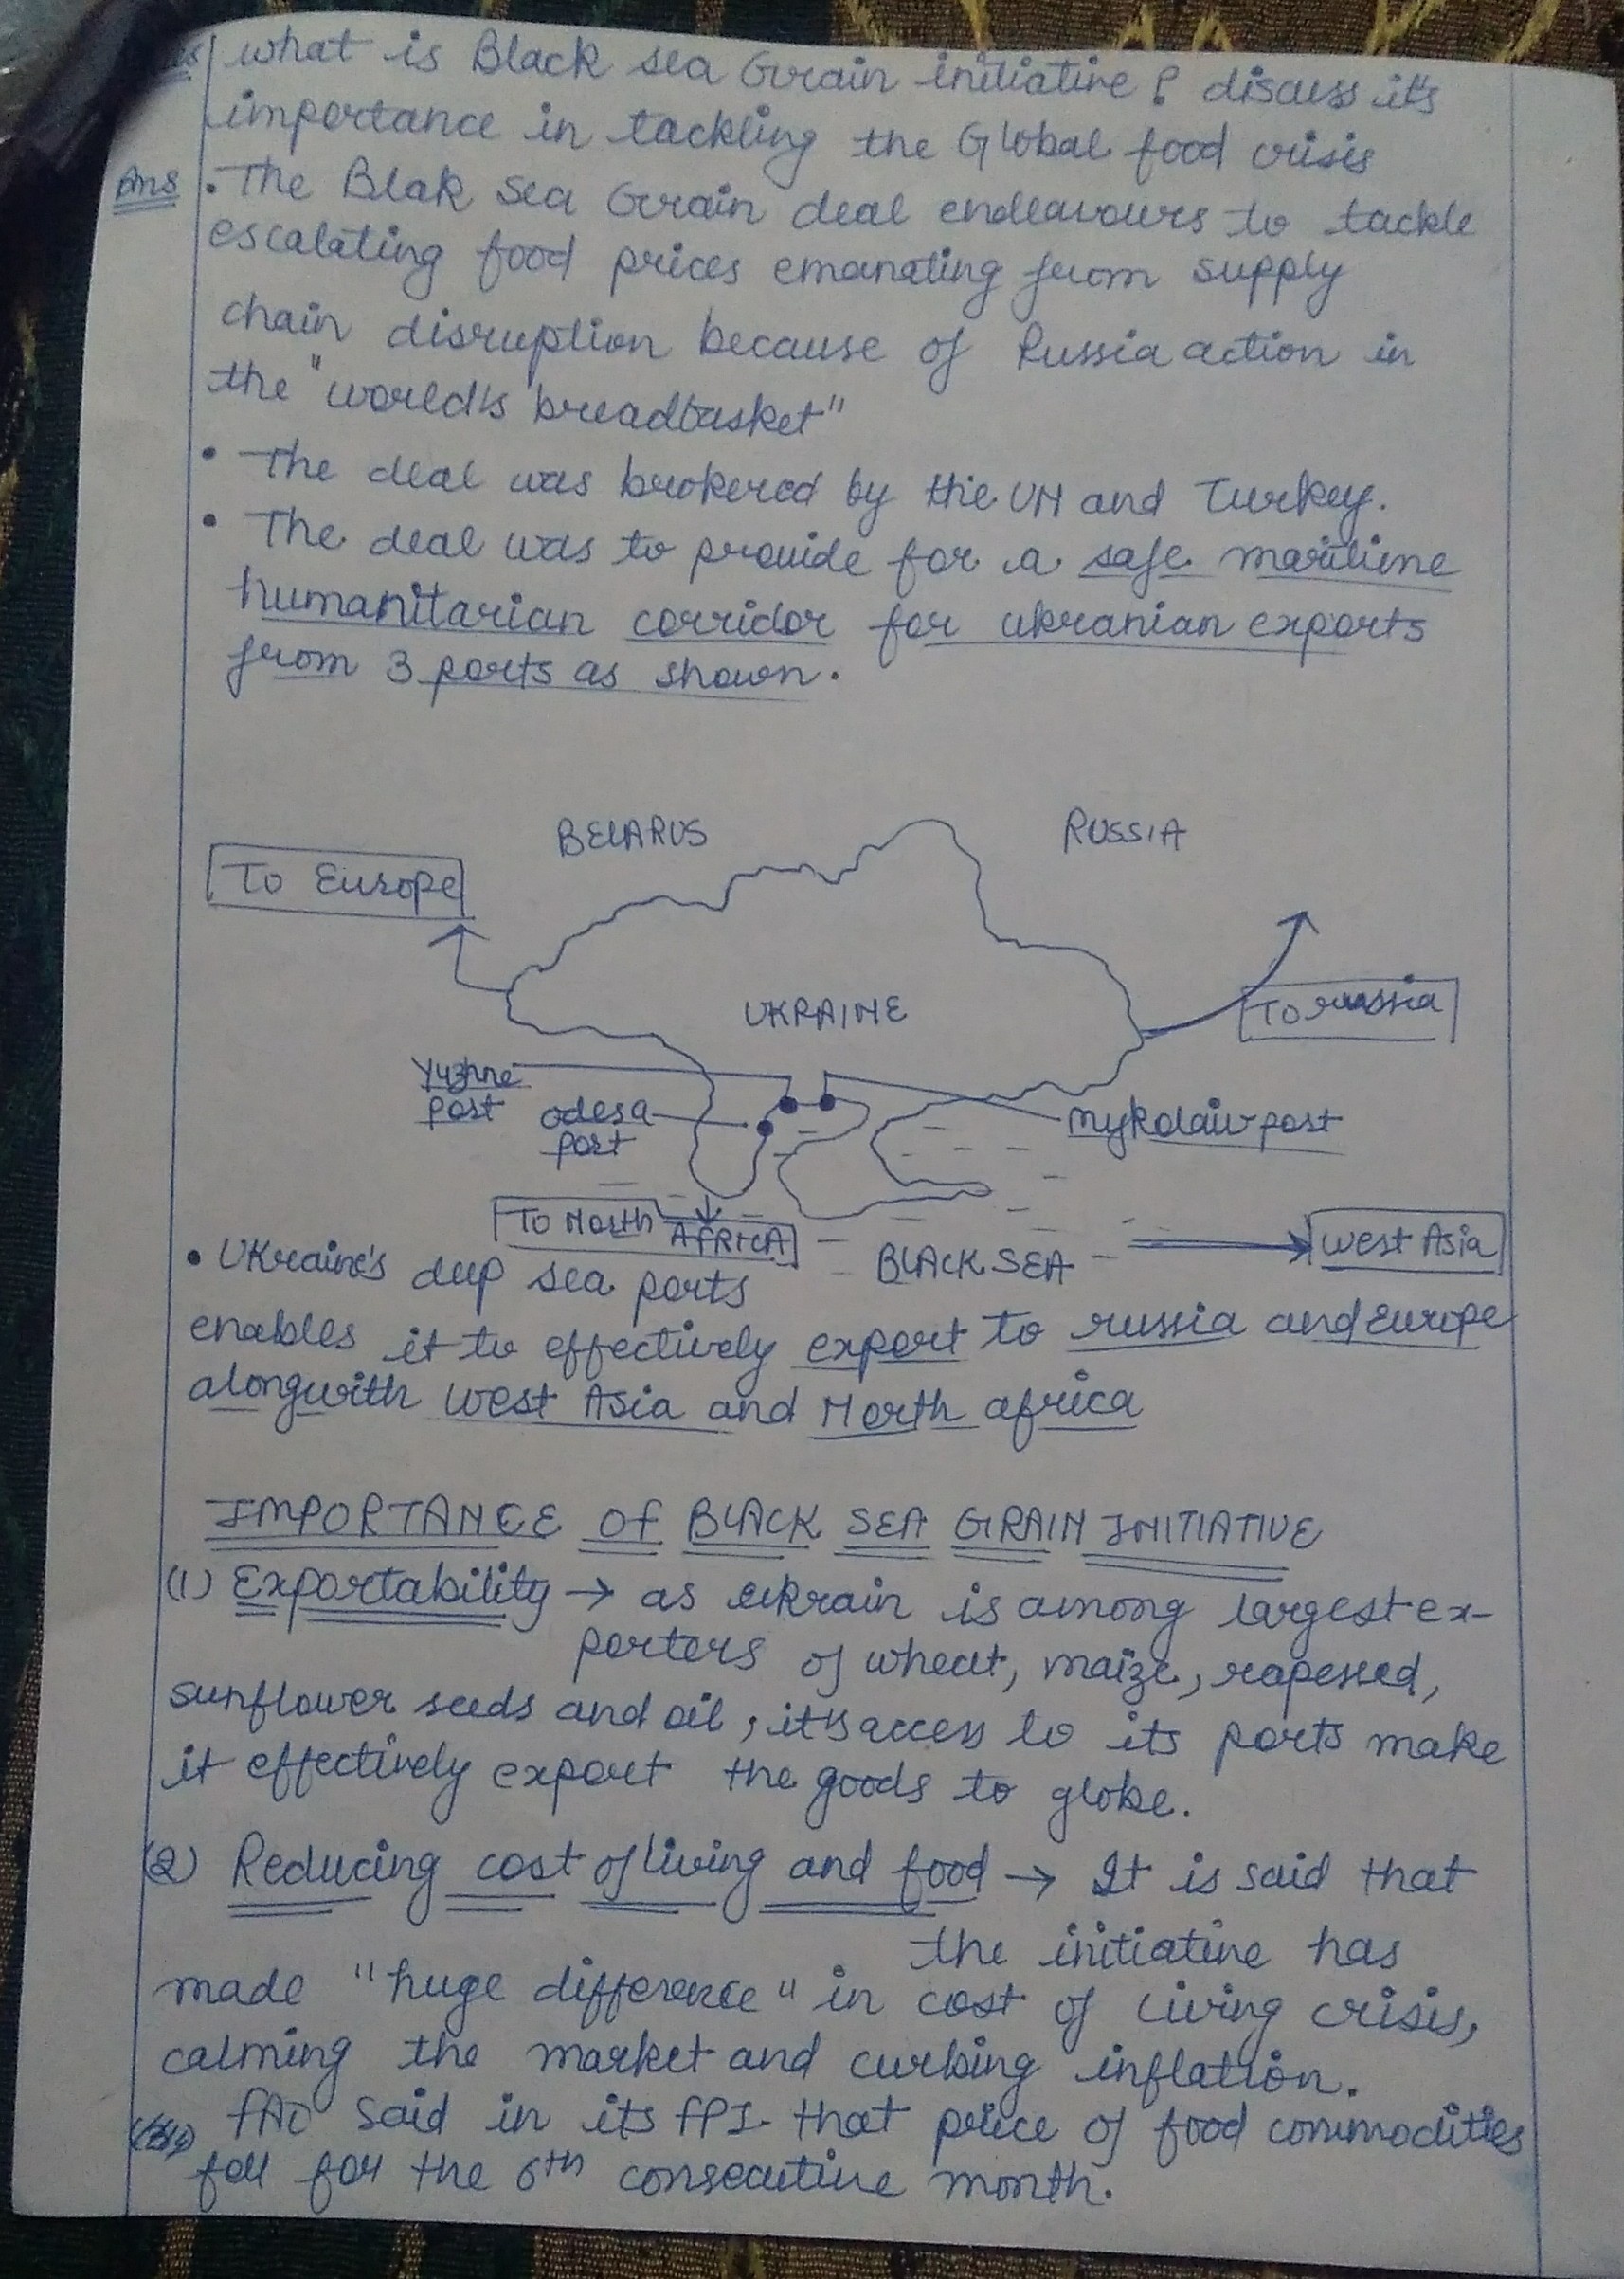 what is Black sea Grain initiative? discuss it's
importance in tackling the Global food crisis
Ans . The Blak Sea Grain deal endeavours to tackle
escalating food prices emanating from supply
chain disruption because of Russia action in
the "world's breadbasket"
• The deal was brokered by the UN and Turkey.
• The deal was to provide for a safe maritime
humanitarian corridor for ukranian exports
from 3 ports as shown.
BELARUS RUSSIA
To Europe
UKRAINE
To russia
Yuzhne
port
odesa
port
mykolaiv port
To North AFRICA
BLACK SEA
West Asia
• Ukraine's deep sea ports
enables it to effectively export to russia and Europe
alongwith West Asia and North africa
IMPORTANCE OF BLACK SEA GRAIN INITIATIVE
(1) Exportability → as ukrain is among largest ex-
porters of wheat, maize, rapessed,
sunflower seeds and oil, it's access to its ports make
it effectively export the goods to globe.
(2) Reducing cost of living and food → It is said that
the initiative has
made "huge difference" in cost of living crisis,
calming the market and curbing inflation.
FAO said in its FPI that price of food commodities
fell for the 6th consecutive month.